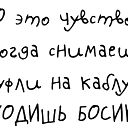 О это чувство
огда снимаеш
уфли на каблу
ХОДИШЬ БОСИК